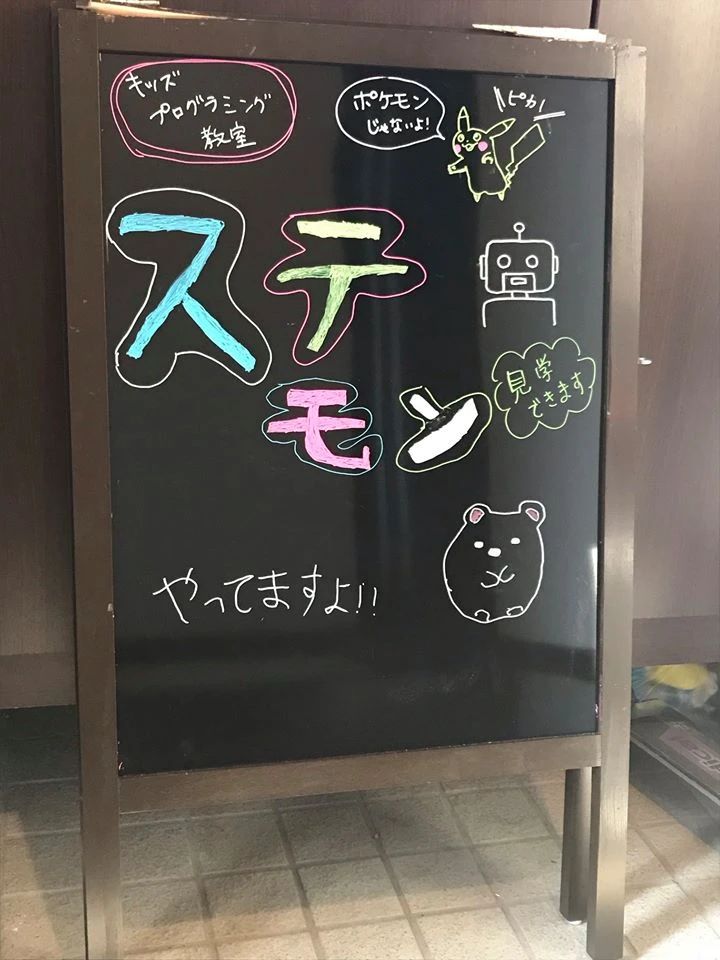 キッズ
プログラミング
教室
ポケモン
じゃないよ!
ピカ
ステ
モン
見学
できます
やってますよ!!